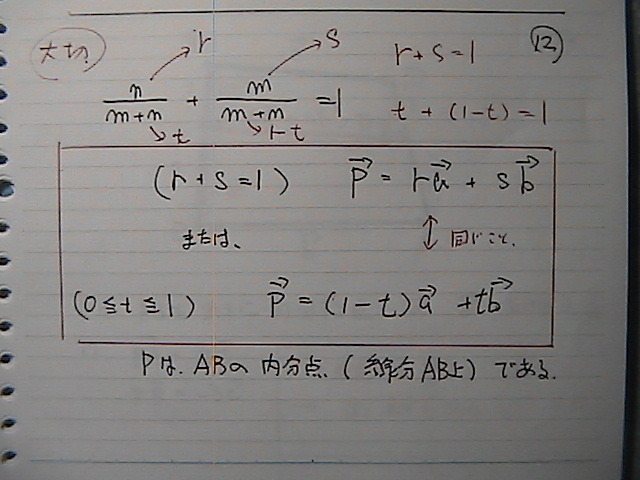 大切! r s r + s = 1 ⑫
n/(m+n) + m/(m+n) = 1 t + (1-t) = 1
t 1-t
(r + s = 1) p⃗ = ra⃗ + sb⃗
または、 ↕ 同じこと。
(0 ≦ t ≦ 1) p⃗ = (1-t)a⃗ + tb⃗
Pは、ABの内分点 (線分AB上) である.